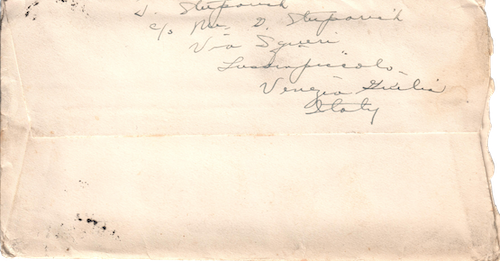 S. Stuparich
c/o Mr. D. Stuparich
Via Squeri
Lussinpiccolo
Venezia Giulia
Italy